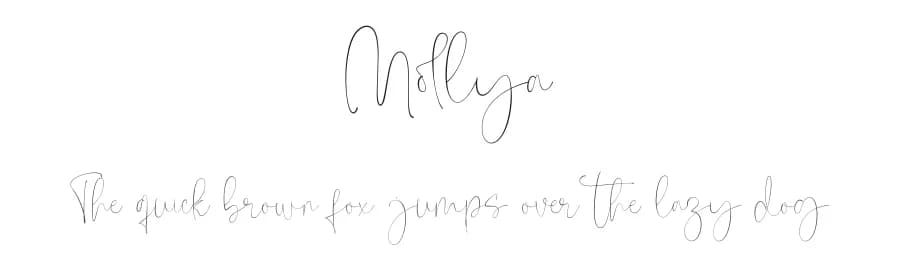 Mollya
The quick brown fox jumps over the lazy dog